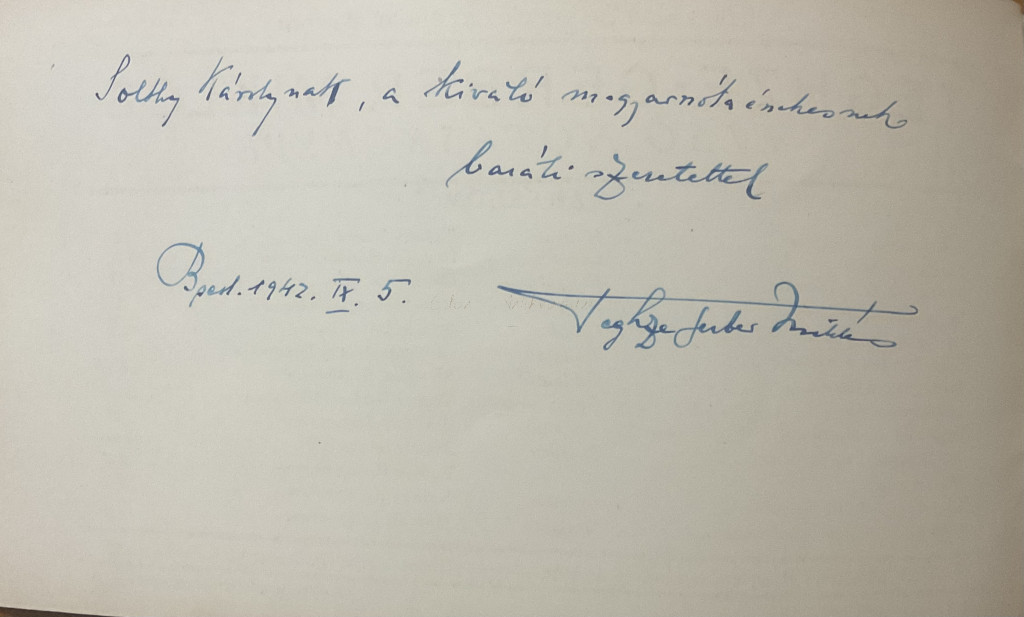 Solthy Károlynak, a kiváló magyarnóta énekesnek
baráti szeretettel
Bpest. 1942. IX. 5.
Teghze Gerber Miklós